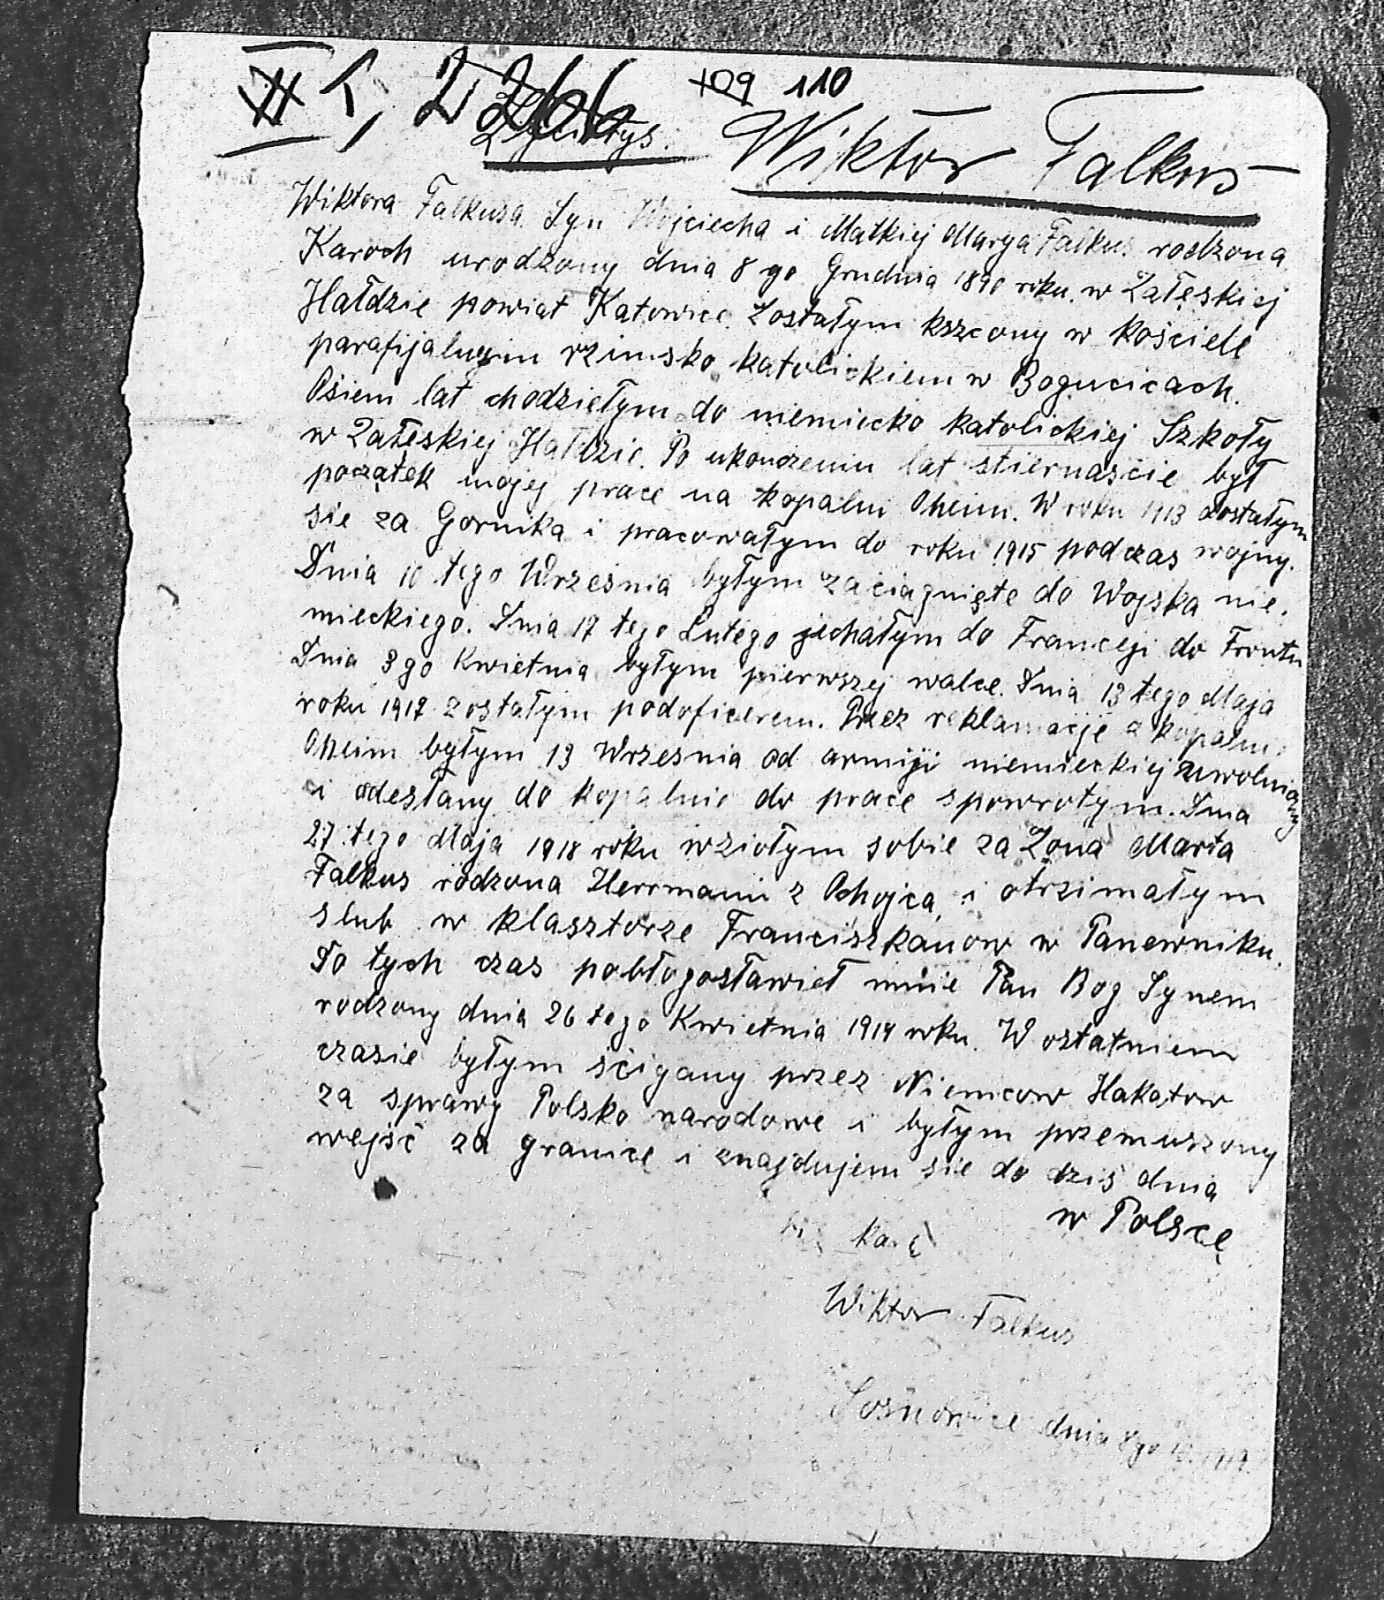 109 110
Życiorys. Wiktor Falkus
Wiktora Falkusa Syn Wojciecha i Matkiej Marya Falkus rodzona
Karoch urodzony dnia 8 go Grudnia 1890 roku. w Załęskiej
Hałdzie powiat Katowice. Zostałym kszcony w kościele
parafijalnym rzimsko katolickiem w Bogucicach.
Osiem lat chodziełym do niemiecko katolickiej Szkoły
w Załeskiej Hałdzie. Po ukonczeniu lat sztiernaście był
początek mojej prace na kopalni Oheim. W roku 1913 dostałym
sie za Gornika i pracowałym do roku 1915 podczas wojny.
Dnia 10 tego Września byłym zaciągnięte do Wojska nie.
mieckiego. Dnia 17 tego Lutego jechałym do Francyji do Frontu
Dnia 3 go Kwietnia byłym pierwszej walce. Dnia 13 tego Maja
roku 1917 zostałym podoficerem. Przez reklamacje z kopalni
Oheim byłym 13 Wrzesnia od armiji niemieckiej uwolniony
i odesłany do kopalnie do prace spowrotym. Dnia
27. tego Maja 1918 roku wziołym sobie za Żona Marta
Falkus rodzona Herrmann z Ochojca i otrzimałym
slub w klasztorze Franciszkanow w Panewniku.
Do tych czas pobłogosławieł mnie Pan Bog Synem
rodzony dnia 26 tego Kwietnia 1919 roku. W ostatniem
czasie byłym ścigany przez Niemcow Hakatow
za sprawy Polsko narodowe i byłym przemuszony
wejść za granicę i znajdujem sie do dziś dnia
w Polscę
Wiktor Falkus
Sosnowice dnia 8go 1919.